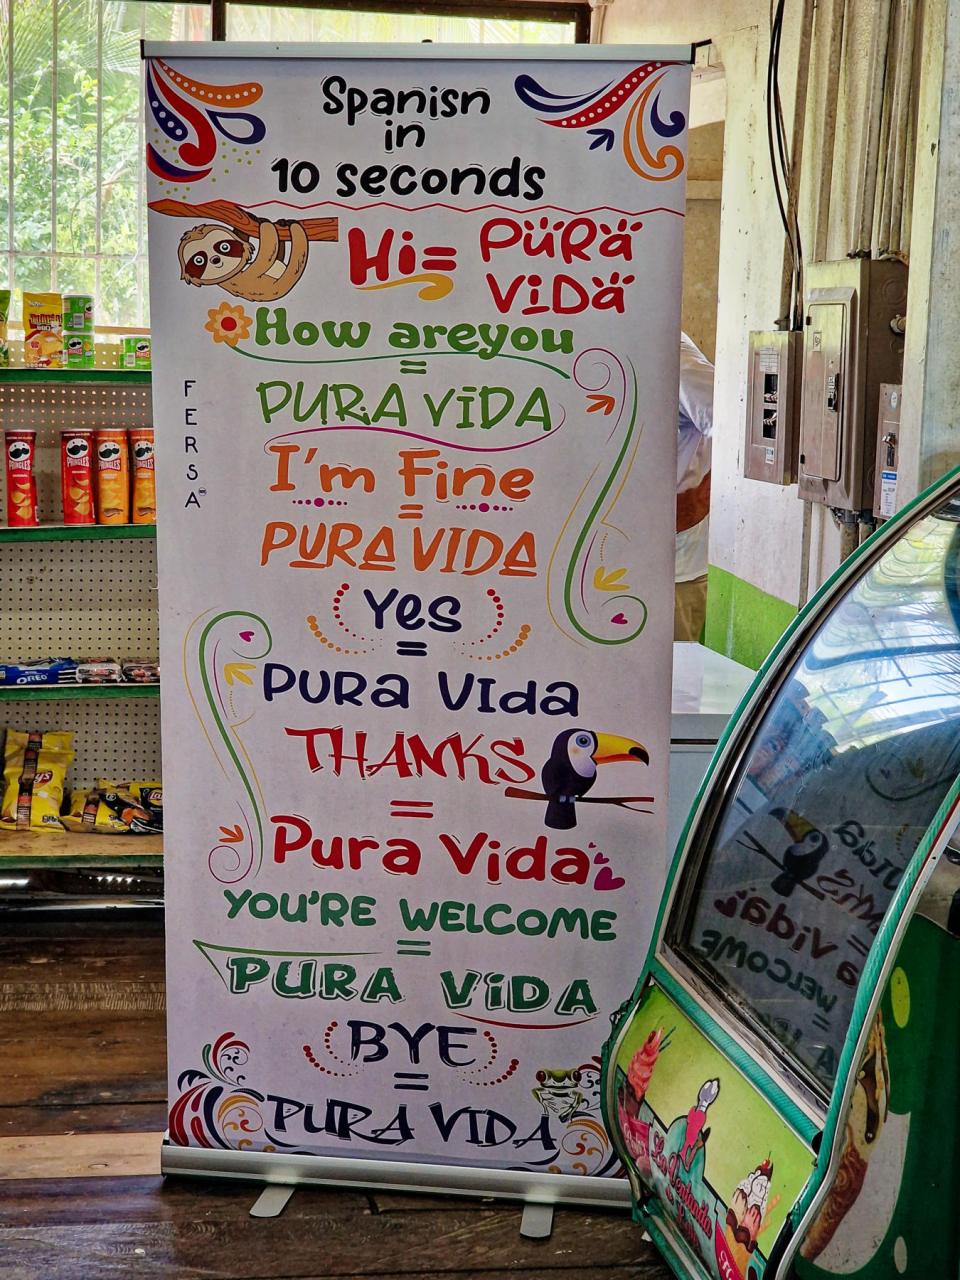 Spanisn
in
10 seconds
Hi= PURa
ViDa
How areyou
=
PURA ViDA
I'm Fine
=
PURA VIDA
Yes
=
PURa VIda
THANKS
=
Pura Vida
YOU'RE WELCOME
=
PURA ViDA
BYE
=
PURA VIDA
FERSA
PRINGLES
PRINGLES
PRINGLES
OREO
Lay's